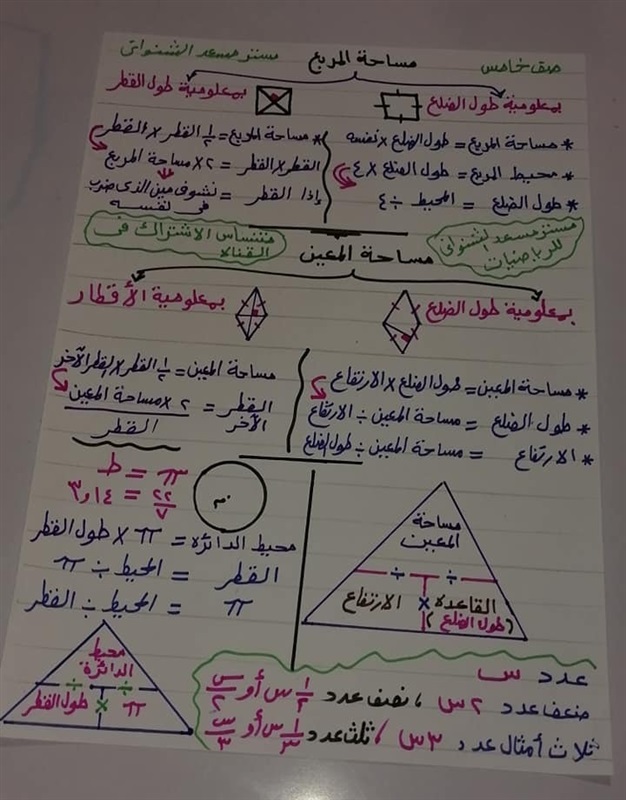 صف خامس
مساحة المربع
مستر مسعد الشنواني
بمعلومية طول الضلع
بمعلومية طول القطر
* مساحة المربع = طول الضلع × نفسه
* محيط المربع = طول الضلع × ٤
* طول الضلع = المحيط ÷ ٤
* مساحة المربع = ١/٢ القطر × القطر
القطر × القطر = ٢ × مساحة المربع
إذا القطر = نشوف مين الذى ضرب
فى نفسه
مستر مسعد الشنوانى
للرياضيات
متنساس الاشتراك فى
القناه
مساحة المعين
بمعلومية طول الضلع
بمعلومية الأقطار
* مساحة المعين = طول الضلع × الارتفاع
* طول الضلع = مساحة المعين ÷ الارتفاع
* الارتفاع = مساحة المعين ÷ طول الضلع
مساحة المعين = ١/٢ القطر × القطر الآخر
القطر الآخر = ٢ × مساحة المعين / القطر
π = ط
٢٢/٧ = ٣,١٤
م
محيط الدائرة = π × طول القطر
القطر = المحيط ÷ π
π = المحيط ÷ القطر
مساحة
المعين
÷ ÷
القاعده × الارتفاع
(طول الضلع)
محيط
الدائرة
÷ ÷
π × طول القطر
عدد س
ضعف عدد ٢س ، نصف عدد ١/٢ س أو س/٢
ثلاث أمثال عدد ٣س ، ثلث عدد ١/٣ س أو س/٣